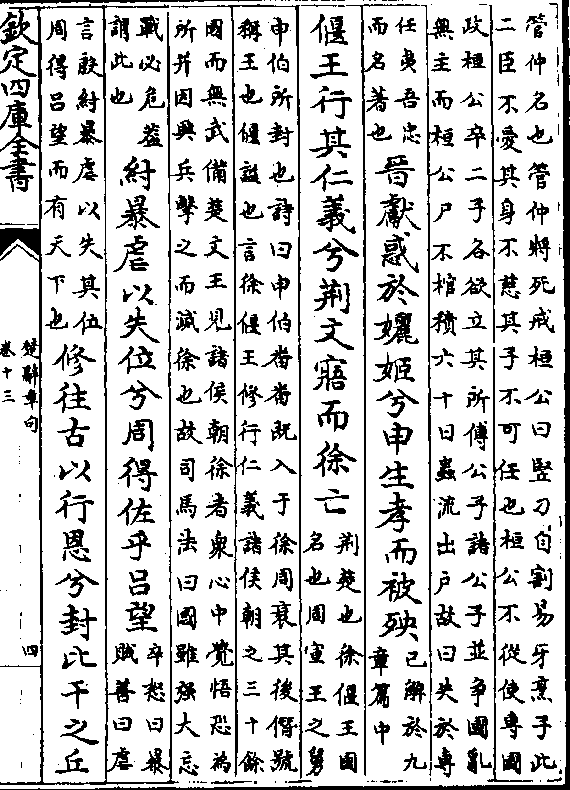 管仲名也管仲將死戒桓公曰豎刀自割易牙烹子此
二臣不愛其身不慈其子不可任也桓公不從使專國
政桓公卒二子各欲立其所傅公子諸公子並爭國亂
無主而桓公尸不棺積六十日蟲流出戶故曰失於專
任夷吾忠
而名著也
晉獻惑於孋姬兮申生孝而被殃
已解於九
章篇中
偃王行其仁義兮荆文寤而徐亡
荆楚也徐偃王國
名也周宣王之舅
申伯所封也詩曰申伯番番既入于徐周衰其後僭號
稱王也偃諡也言徐偃王修行仁義諸侯朝之三十餘
國而無武備楚文王見諸侯朝徐者衆心中覺悟恐為
所并因興兵擊之而滅徐也故司馬法曰國雖强大忘
戰必危葢
謂此也
紂暴虐以失位兮周得佐乎呂望
卒怒曰暴
賊善曰虐
言殷紂暴虐以失其位
周得呂望而有天下也
修往古以行恩兮封比干之丘
欽定四庫全書
楚辭章句
卷十三
四